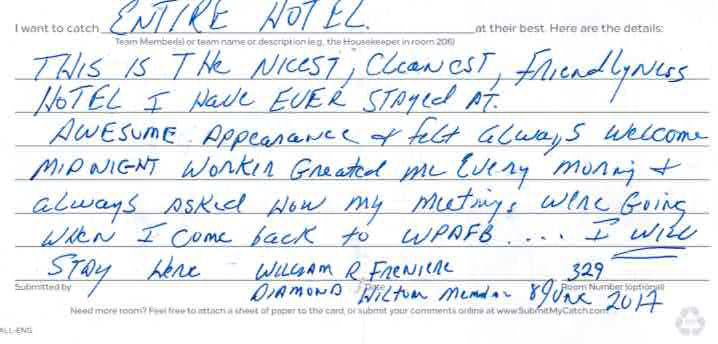 I want to catch ENTIRE HOTEL. at their best. Here are the details:
Team Member(s) or team name or description (e.g., the Housekeeper in room 206)
THIS IS THE NICEST, CLEANEST, friendlyness
HOTEL I HAVE EVER STAYED AT.
AWESUME Appearance & felt always welcome
MIDNIGHT WORKER Greated me Every morning &
always ASKED HOW my meetings were Going
WHEN I come back to WPAFB .... I WILL
STAY Here WILLIAM R FRENIERE 329
Submitted by Date Room Number (optional)
DIAMOND HILTON Member 8 June 2017
Need more room? Feel free to attach a sheet of paper to the card, or submit your comments online at www.SubmitMyCatch.com
ALL-ENG